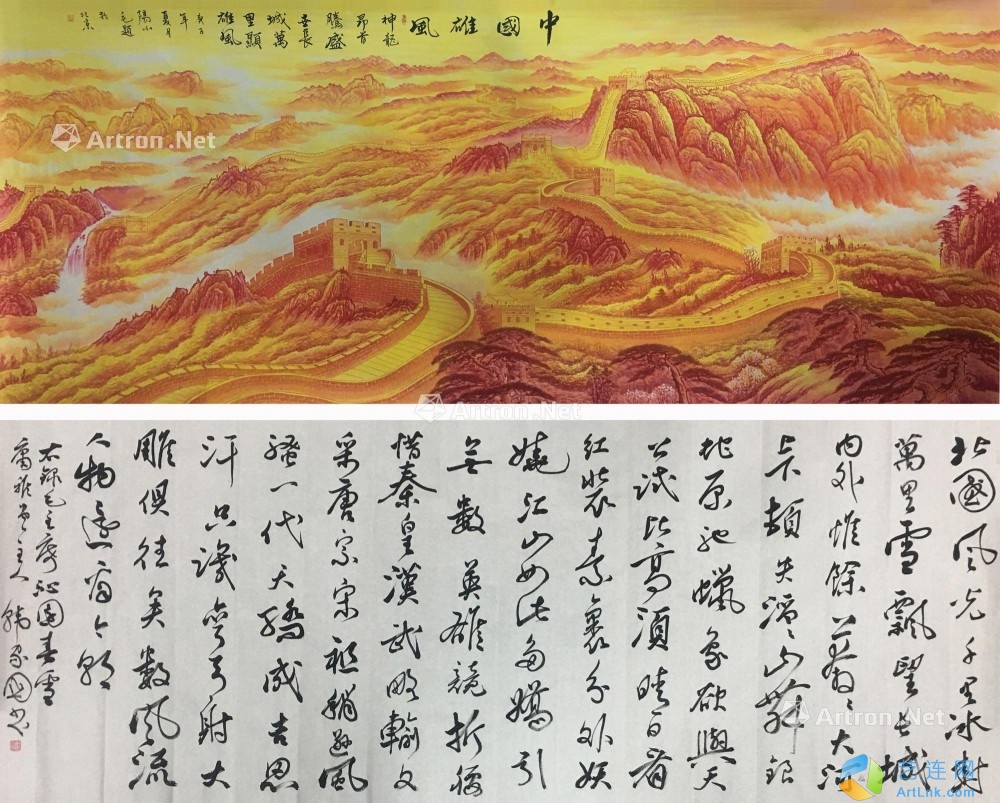 中國雄風
神龍
昂首
騰盛
世長
城萬
里顯
雄風
年
夏月
陽小
毛題
於
北京
北國風光千里冰封
萬里雪飄望長城
內外惟餘莽莽大河
上下頓失滔滔山舞銀
蛇原馳蠟象欲與天
公試比高須晴日看
紅裝素裹分外妖
嬈江山如此多嬌引
無數英雄競折腰
惜秦皇漢武略輸文
采唐宗宋祖稍遜風
騷一代天驕成吉思
汗只識彎弓射大
雕俱往矣數風流
人物還看今朝
右錄毛主席沁園春雪
主人 韓家國書
Artron.Net
Artron.Net
Artron.Net
Artron.Net
Artron.Net
艺连网
ArtLnk.com